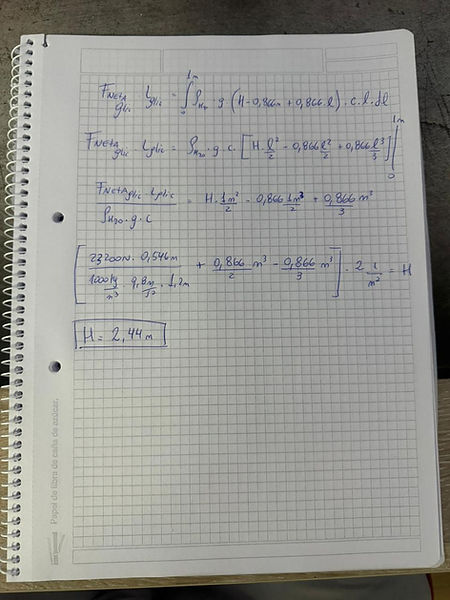 F_NETA glic · L_glic = ∫₀^1m ρ_H₂O · g (H - 0,866m + 0,866·l) · c · l · dl
F_NETA glic · L_glic = ρ_H₂O · g · c · [H · l²/2 - 0,866 l²/2 + 0,866 l³/3] |₀^1m
F_NETA glic · L_glic / ρ_H₂O · g · c = H · 1m²/2 - 0,866 1m³/2 + 0,866/3 m³
[23200N · 0,546m / 1000 kg/m³ 9,8 m/s² · 1,2m + 0,866/2 m³ - 0,866/3 m³] · 2 1/m² = H
H = 2,44m
Papel de fibra de caña de azúcar.